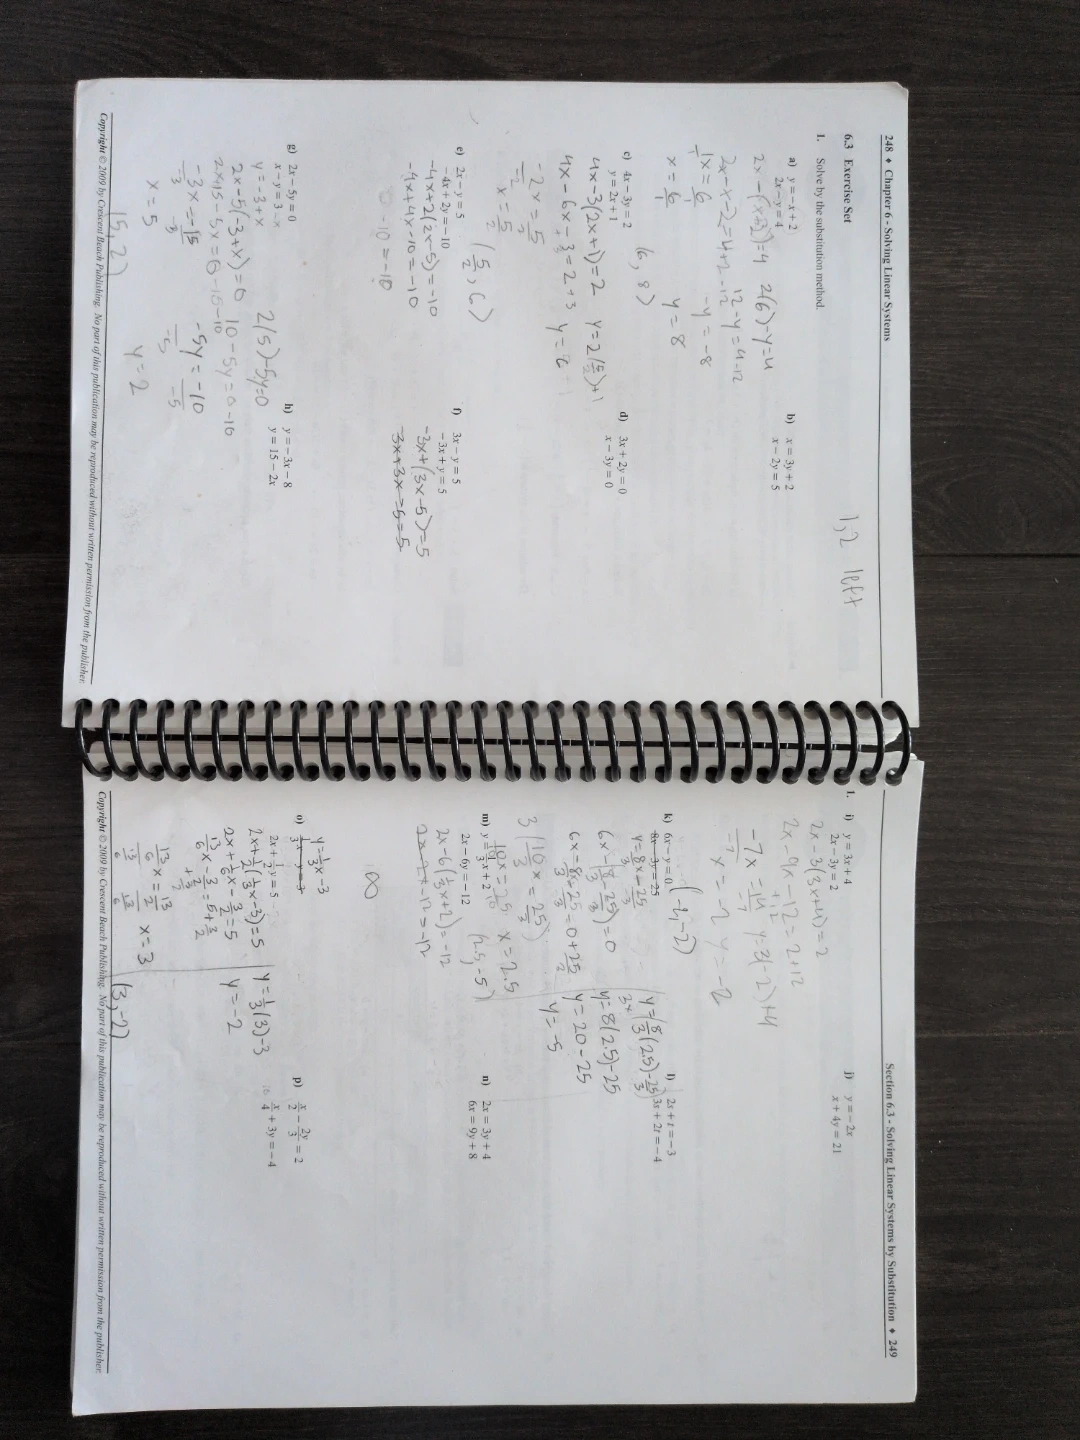 248 ♦ Chapter 6 - Solving Linear Systems
6.3 Exercise Set
1,2 left
1. Solve by the substitution method.
a) y = -x + 2
2x - y = 4
2x - (x+2) = 4
2x - x - 2 = 4 + 2
x = 6
2(6) - y = 4
12 - y = 4 - 12
-12
-y = -8
y = 8
(6, 8)
b) x = 3y + 2
x - 2y = 5
c) 4x - 3y = 2
y = 2x + 1
4x - 3(2x+1) = 2
4x - 6x - 3 = 2 + 3
-2x = 5
x = 5/2
y = 2(5/2) + 1
y = 6
(5/2, 6)
d) 3x + 2y = 0
x - 3y = 0
e) 2x - y = 5
-4x + 2y = -10
-4x + 2(2x-5) = -10
-4x + 4x - 10 = -10
-10 = -10
f) 3x - y = 5
-3x + y = 5
-3x + (3x-5) = 5
-3x + 3x - 5 = 5
g) 2x - 5y = 0
x - y = 3
y = -3 + x
2x - 5(-3+x) = 0
2x + 15 - 5x = 0 - 15
-3x = -15
x = 5
2(5) - 5y = 0
10 - 5y = 0 - 10
-5y = -10
-5 -5
y = 2
(5, 2)
h) y = -3x - 8
y = 15 - 2x
Copyright © 2009 by Crescent Beach Publishing. No part of this publication may be reproduced without written permission from the publisher.
Section 6.3 - Solving Linear Systems by Substitution ♦ 249
1. i) y = 3x + 4
2x - 3y = 2
2x - 3(3x+4) = 2
2x - 9x - 12 = 2 + 12
-7x = 14
-7 -7
x = -2
y = 3(-2) + 4
y = -2
(-2, -2)
j) y = -2x
x + 4y = 21
k) 6x - y = 0
8x - 3y = 25
y = 8/3x - 25/3
6x - (8/3 - 25/3) = 0
6x - 8x + 25/3 = 0 + 25/3
3(10/3x = 25/3)
10x = 25
x = 2.5
y = (8/3(2.5) - 25/3)
y = 8(2.5) - 25
y = 20 - 25
y = -5
(2.5, -5)
l) 2s + t = -3
3s + 2t = -4
m) y = 1/3x + 2
2x - 6y = -12
2x - 6(1/3x + 2) = -12
2x - 2x - 12 = -12
∞
n) 2x = 3y + 4
6x = 9y + 8
o) 1/3x - y = 3
y = 1/3x - 3
2x + 1/2y = 5
2x + 1/2(1/3x - 3) = 5
2x + 1/6x - 3/2 = 5
13/6x - 3/2 = 5 + 3/2
13/6x = 13/2
x = 3
y = 1/3(3) - 3
y = -2
(3, -2)
p) x/2 - 2y/3 = 2
x/4 + 3y = -4
Copyright © 2009 by Crescent Beach Publishing. No part of this publication may be reproduced without written permission from the publisher.